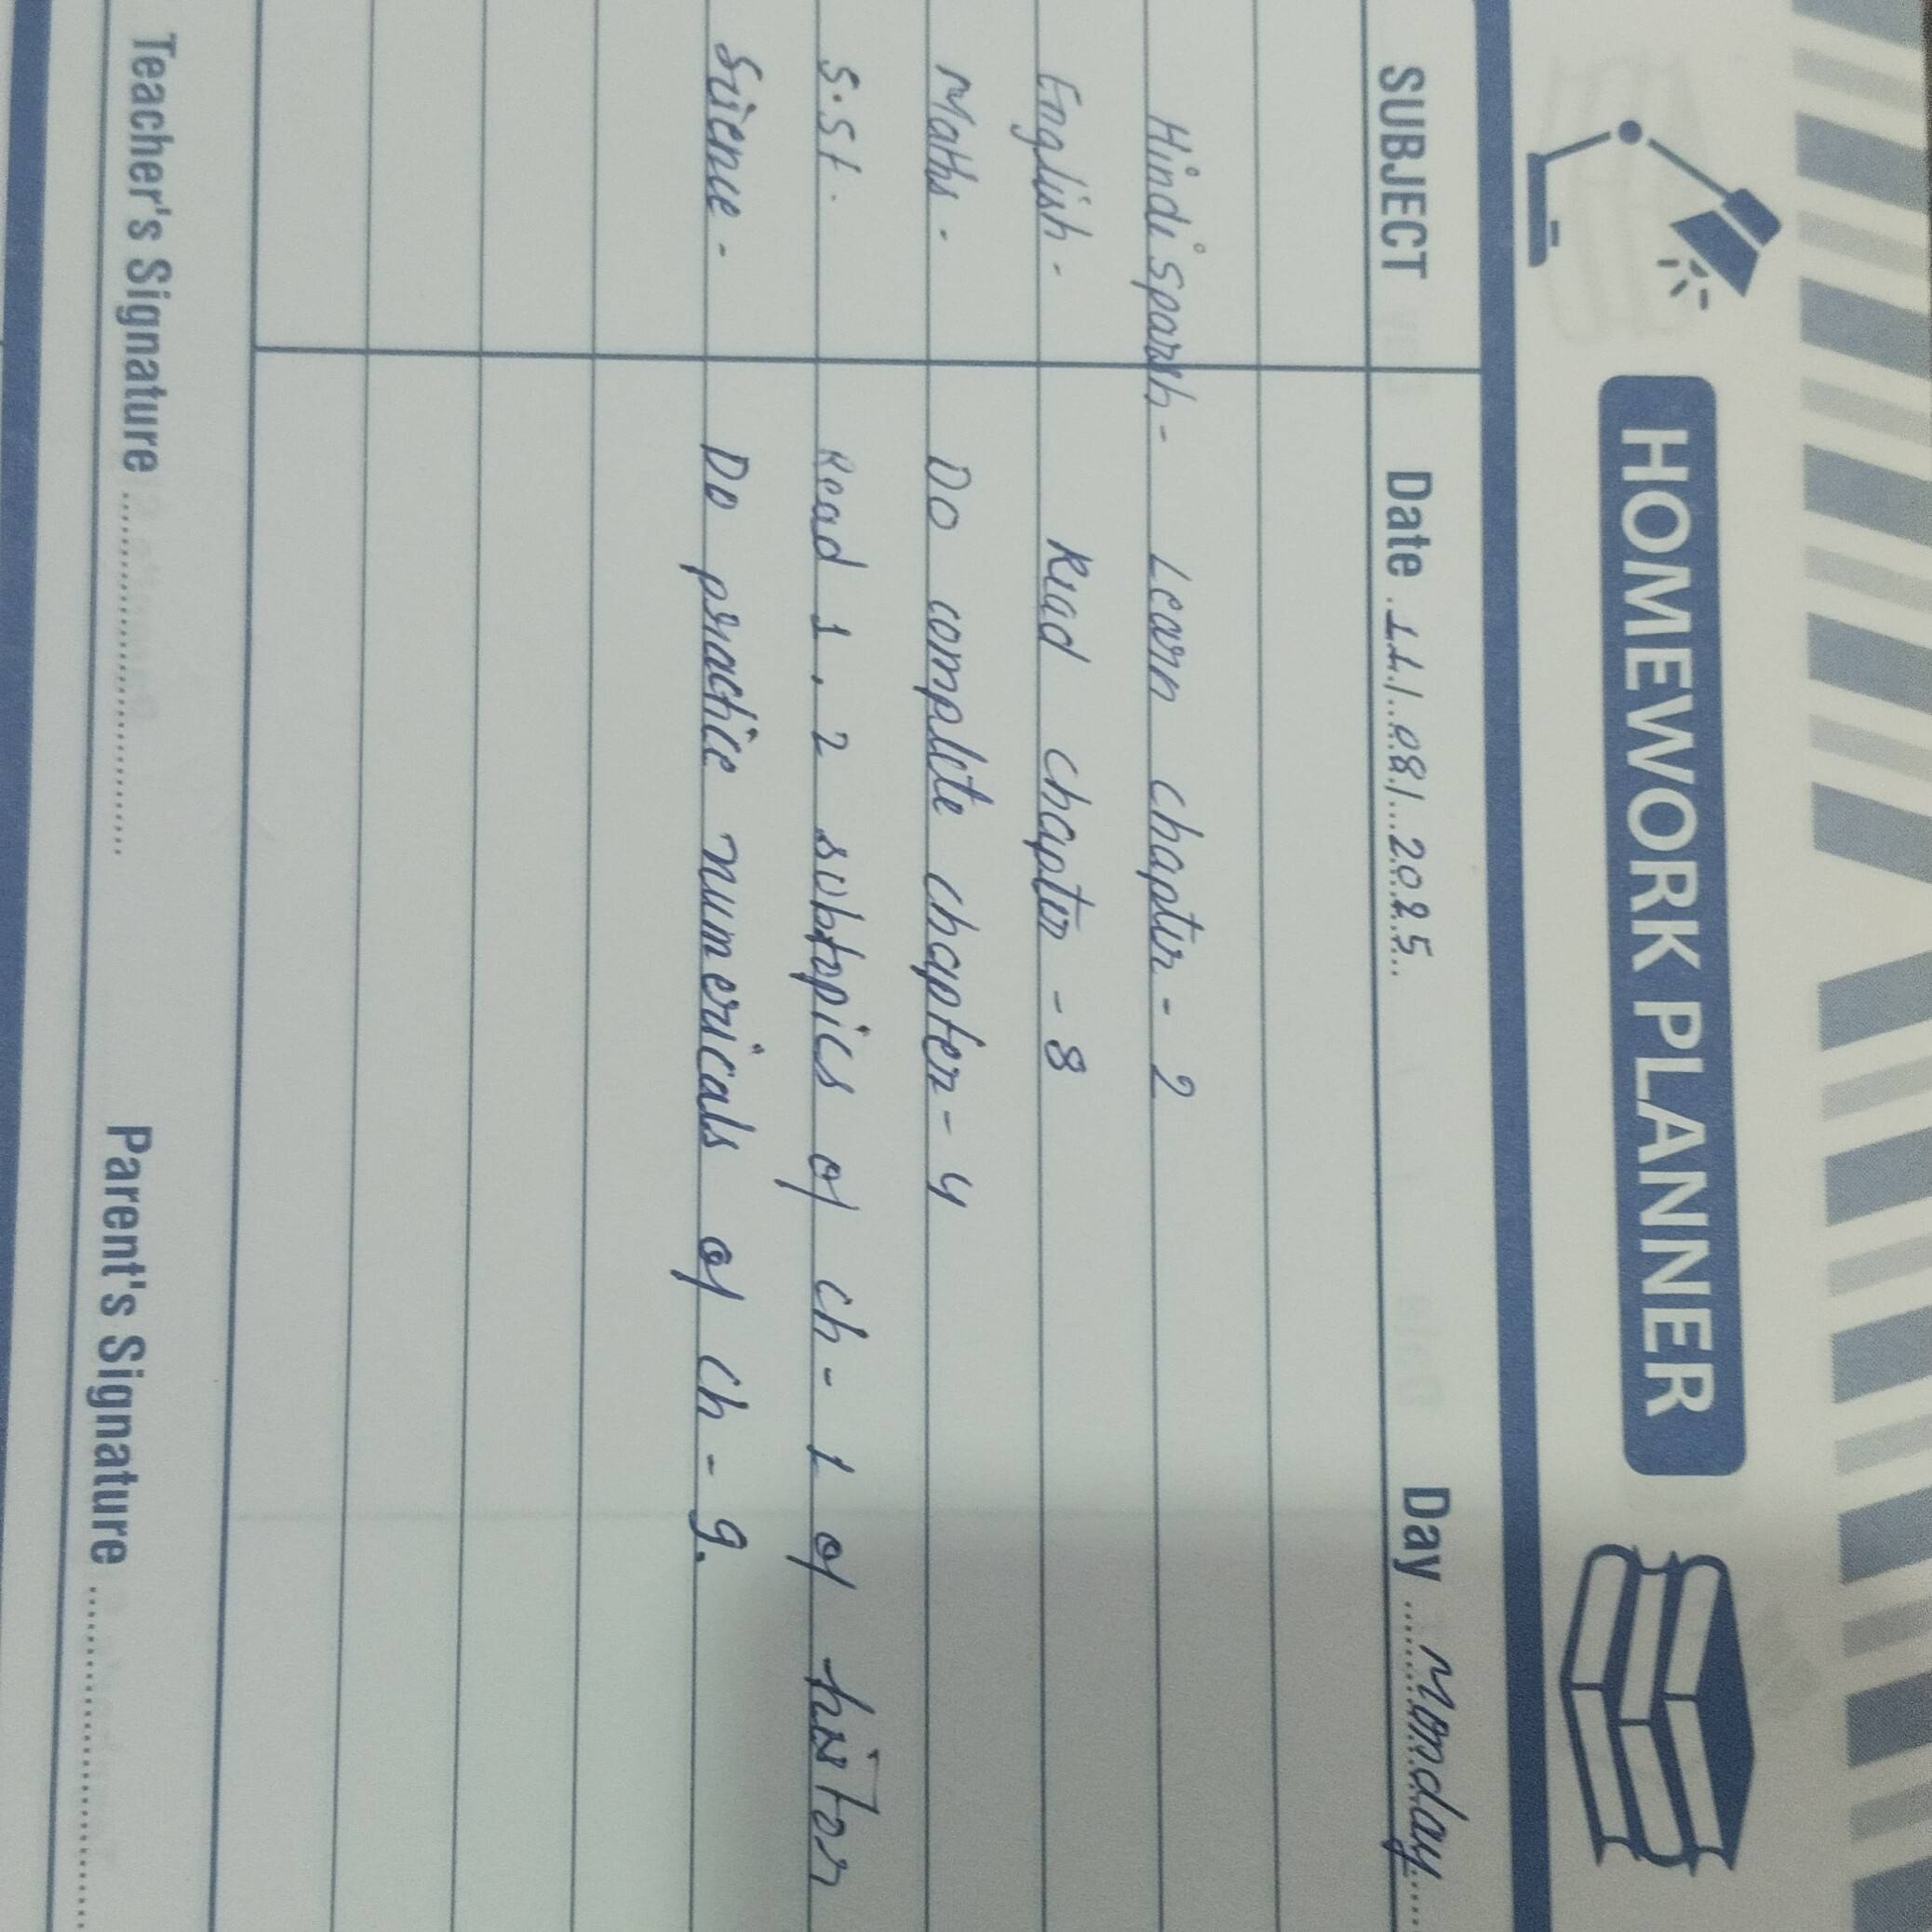 HOMEWORK PLANNER
SUBJECT Date 11/08/2025 Day Monday
Hindi Sparsh - Learn chapter - 2
English - Read chapter - 8
Maths - Do complete chapter - 4
S.St. Read 1, 2 subtopics of ch - 1 of histor
Science - Do practice numericals of ch - 9.
Teacher's Signature Parent's Signature